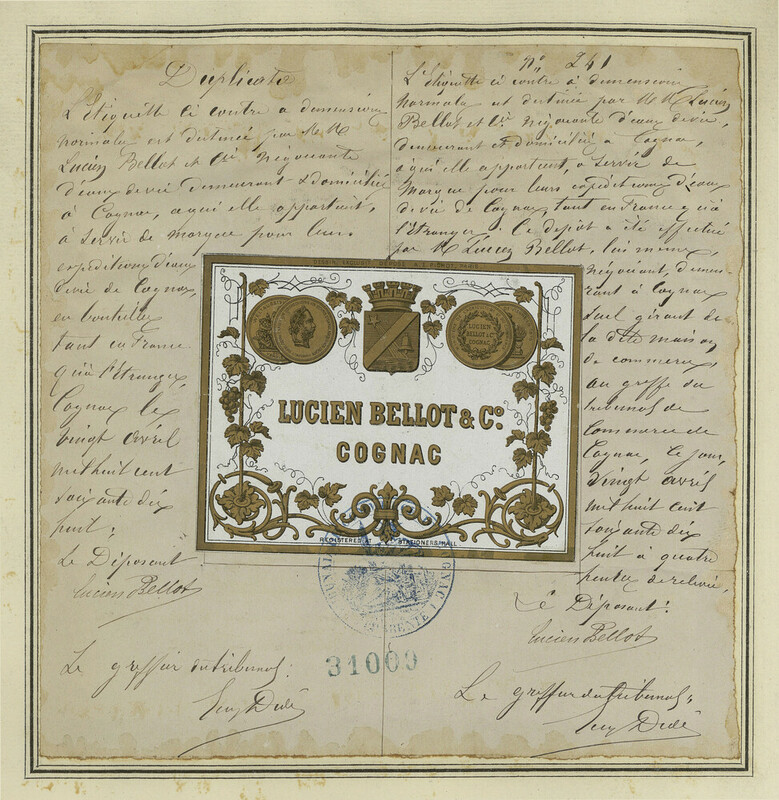 Duplicata
L'étiquette ci contre a dimension
normale est destinée par M M
Lucien Bellot et Cie négociants
d'eaux de vie demeurant & domiciliés
à Cognac, a qui elle appartient,
à servir de marque pour leurs
expeditions d'eaux
de vie de Cognac,
en bouteilles
tant en France
qu'à l'Etranger,
Cognac le
vingt avril
mil huit cent
soixante dix
huit.
Le Déposant
Lucien Bellot
Le greffier du tribunal:
No 241
L'étiquette ci contre à dimension
normale est destinée par M M Lucien
Bellot et Cie négociants d'eaux de vie,
demeurant et domiciliés a Cognac,
à qui elle appartient, a servir de
marque pour leurs expéditions d'eaux
de vie de Cognac, tant en France qu'à
l'Etranger. Ce depot a été effectué
par M Lucien Bellot, lui même,
négociant, demeu
rant à Cognac
seul gérant de
la dite maison
de commerce,
au greffe du
tribunal de
Commerce de
Cognac, ce jour,
vingt avril
mil huit cent
soixante dix
huit à quatre
heures de relevée,
Le Déposant:
Lucien Bellot
Le greffier du tribunal,
LUCIEN
BELLOT & Co
COGNAC
LUCIEN BELLOT & Co.
COGNAC
REGISTERED AT STATIONERS HALL
31009